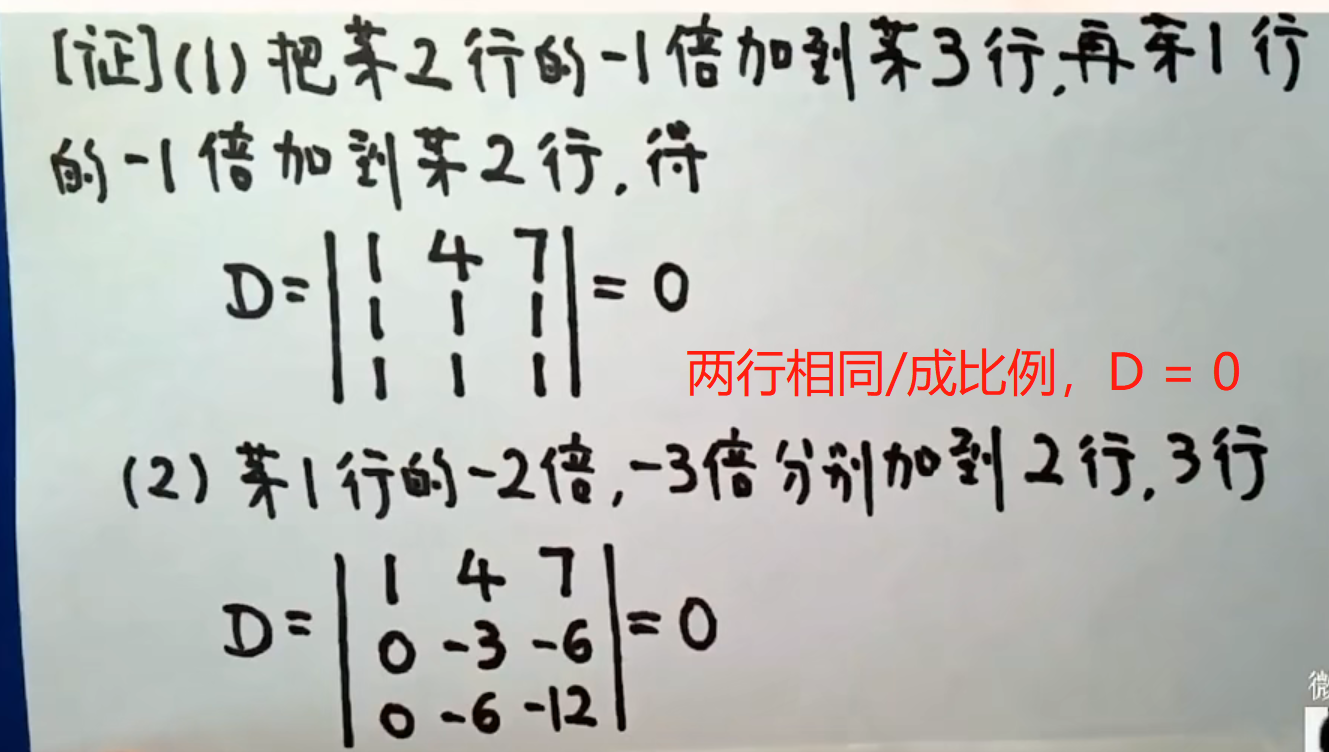 [证](1)把第2行的-1倍加到第3行,再第1行
的-1倍加到第2行,得
D=|1 4 7|=0
|1 1 1|
|1 1 1|
两行相同/成比例，D = 0
(2)第1行的-2倍,-3倍分别加到2行,3行
D=|1 4 7|=0
|0 -3 -6|
|0 -6 -12|
微